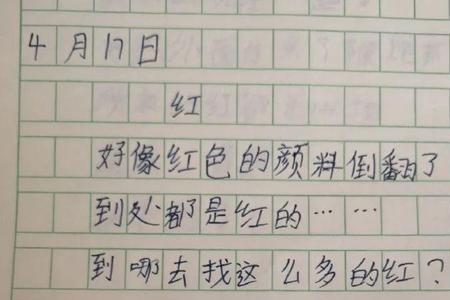 4月17日
红
好像红色的颜料倒翻了
到处都是红的……
到哪去找这么多的红？